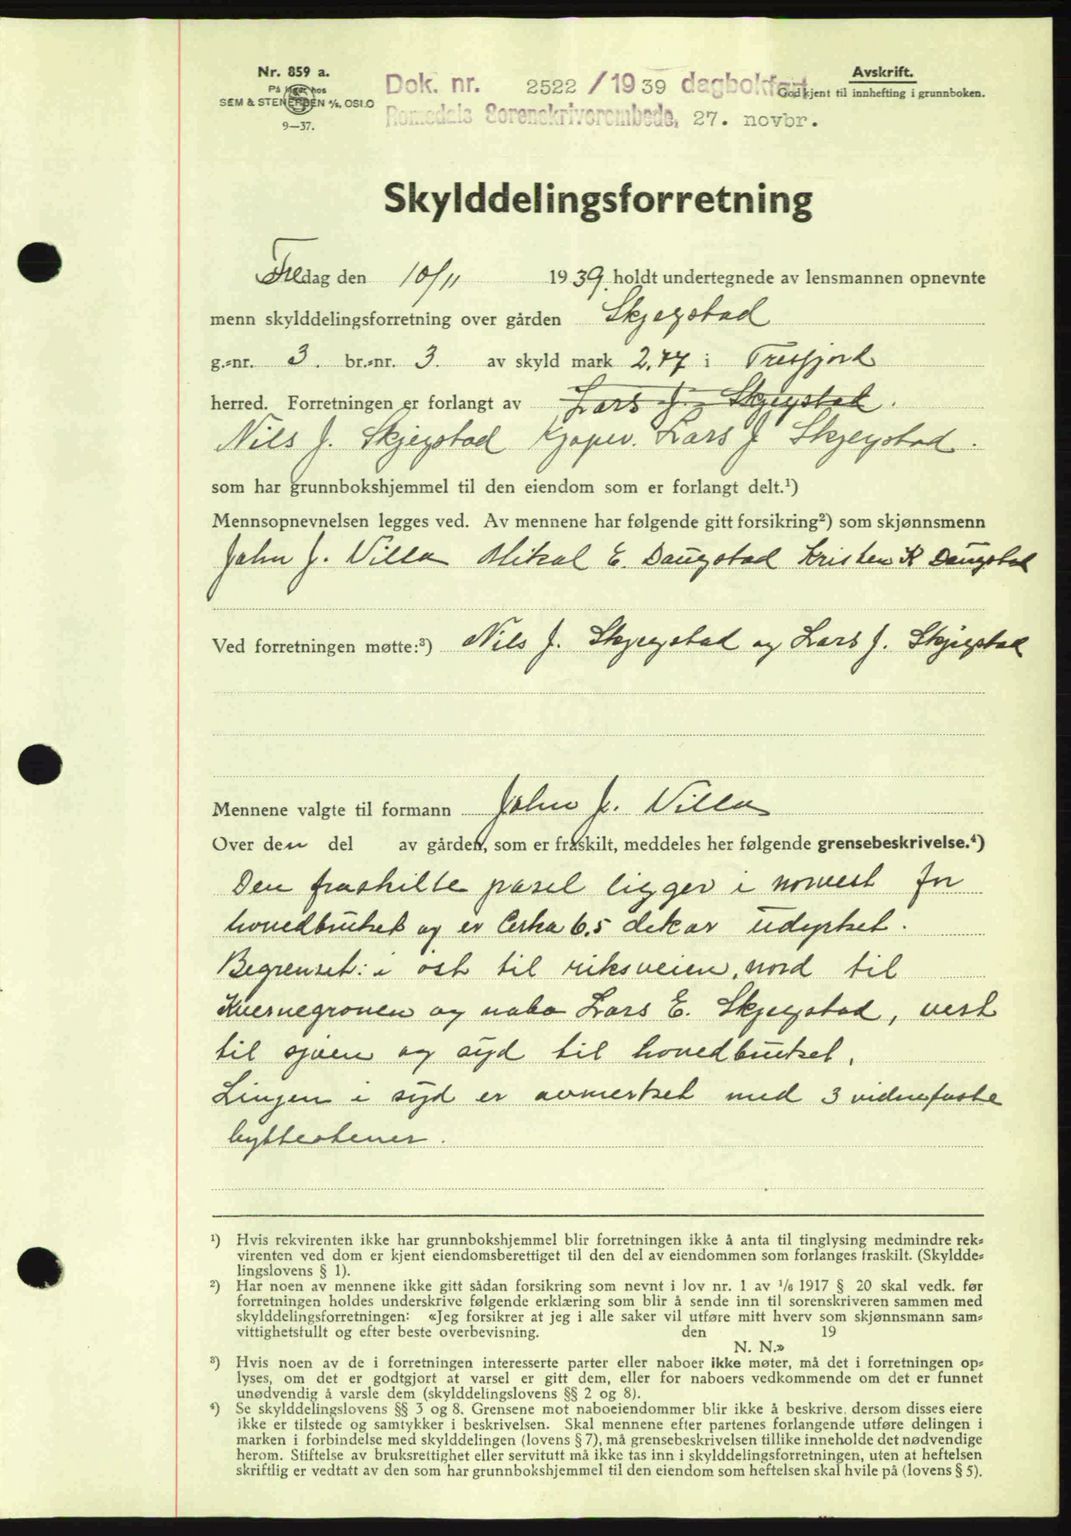 Nr. 859 a.
På lager hos
SEM & STENERSEN A/S, OSLO
9—37.
Dok. nr. 2522 / 19 39 dagbokført
Romsdals Sorenskriverembede, 27. novbr.
Avskrift.
Godkjent til innhefting i grunnboken.
Skylddelingsforretning
Fredag den 10/11 1939. holdt undertegnede av lensmannen opnevnte
menn skylddelingsforretning over gården Skjegstad
g.=nr. 3. br.=nr. 3. av skyld mark 2,47 i Tresfjord
herred. Forretningen er forlangt av Lars J. Skjegstad.
Nils J. Skjegstad kjøper. Lars J Skjegstad.
som har grunnbokshjemmel til den eiendom som er forlangt delt.¹)
Mennsopnevnelsen legges ved. Av mennene har følgende gitt forsikring²) som skjønnsmenn
John J. Villa Mikal E. Daugstad Kristen K Daugstad
Ved forretningen møtte:³) Nils J. Skjegstad og Lars J. Skjegstad
Mennene valgte til formann John J. Villa
Over den del av gården, som er fraskilt, meddeles her følgende grensebeskrivelse.⁴)
Den fraskilte parsel ligger i norvest for
hovedbruket og er Cirka 6,5 dekar udyrket.
Begrenset: i øst til riksveien, nord til
Kvernegroven og nabo Lars E. Skjegstad, vest
til sjøen og syd til hovedbruket.
Linjen i syd er avmerket med 3 vidnefaste
byttestener.
¹) Hvis rekvirenten ikke har grunnbokshjemmel blir forretningen ikke å anta til tinglysing medmindre rek=
virenten ved dom er kjent eiendomsberettiget til den del av eiendommen som forlanges fraskilt. (Skyldde=
lingslovens § 1).
²) Har noen av mennene ikke gitt sådan forsikring som nevnt i lov nr. 1 av 1/6 1917 § 20 skal vedk. før
forretningen holdes underskrive følgende erklæring som blir å sende inn til sorenskriveren sammen med
skylddelingsforretningen: «Jeg forsikrer at jeg i alle saker vil utføre mitt hverv som skjønnsmann sam=
vittighetsfullt og efter beste overbevisning. den 19
N. N.»
³) Hvis noen av de i forretningen interesserte parter eller naboer ikke møter, må det i forretningen op=
lyses, om det er godtgjort at varsel er gitt dem, eller for naboers vedkommende om det er funnet
unødvendig å varsle dem (skylddelingslovens §§ 2 og 8).
⁴) Se skylddelingslovens §§ 3 og 8. Grensene mot naboeiendommer blir ikke å beskrive, dersom disses eiere
ikke er tilstede og samtykker i beskrivelsen. Skal mennene efter partenes forlangende utføre delingen i
marken i forbindelse med skylddelingen (lovens § 7), må grensebeskrivelsen tillike inneholde det nødvendige
herom. Stiftelse av bruksrettighet eller servitutt må ikke tas inn i skylddelingsforretningen, uten at heftelsen
skriftlig er vedtatt av den som har grunnbokshjemmel til den eiendom som heftelsen skal hvile på (lovens § 5).